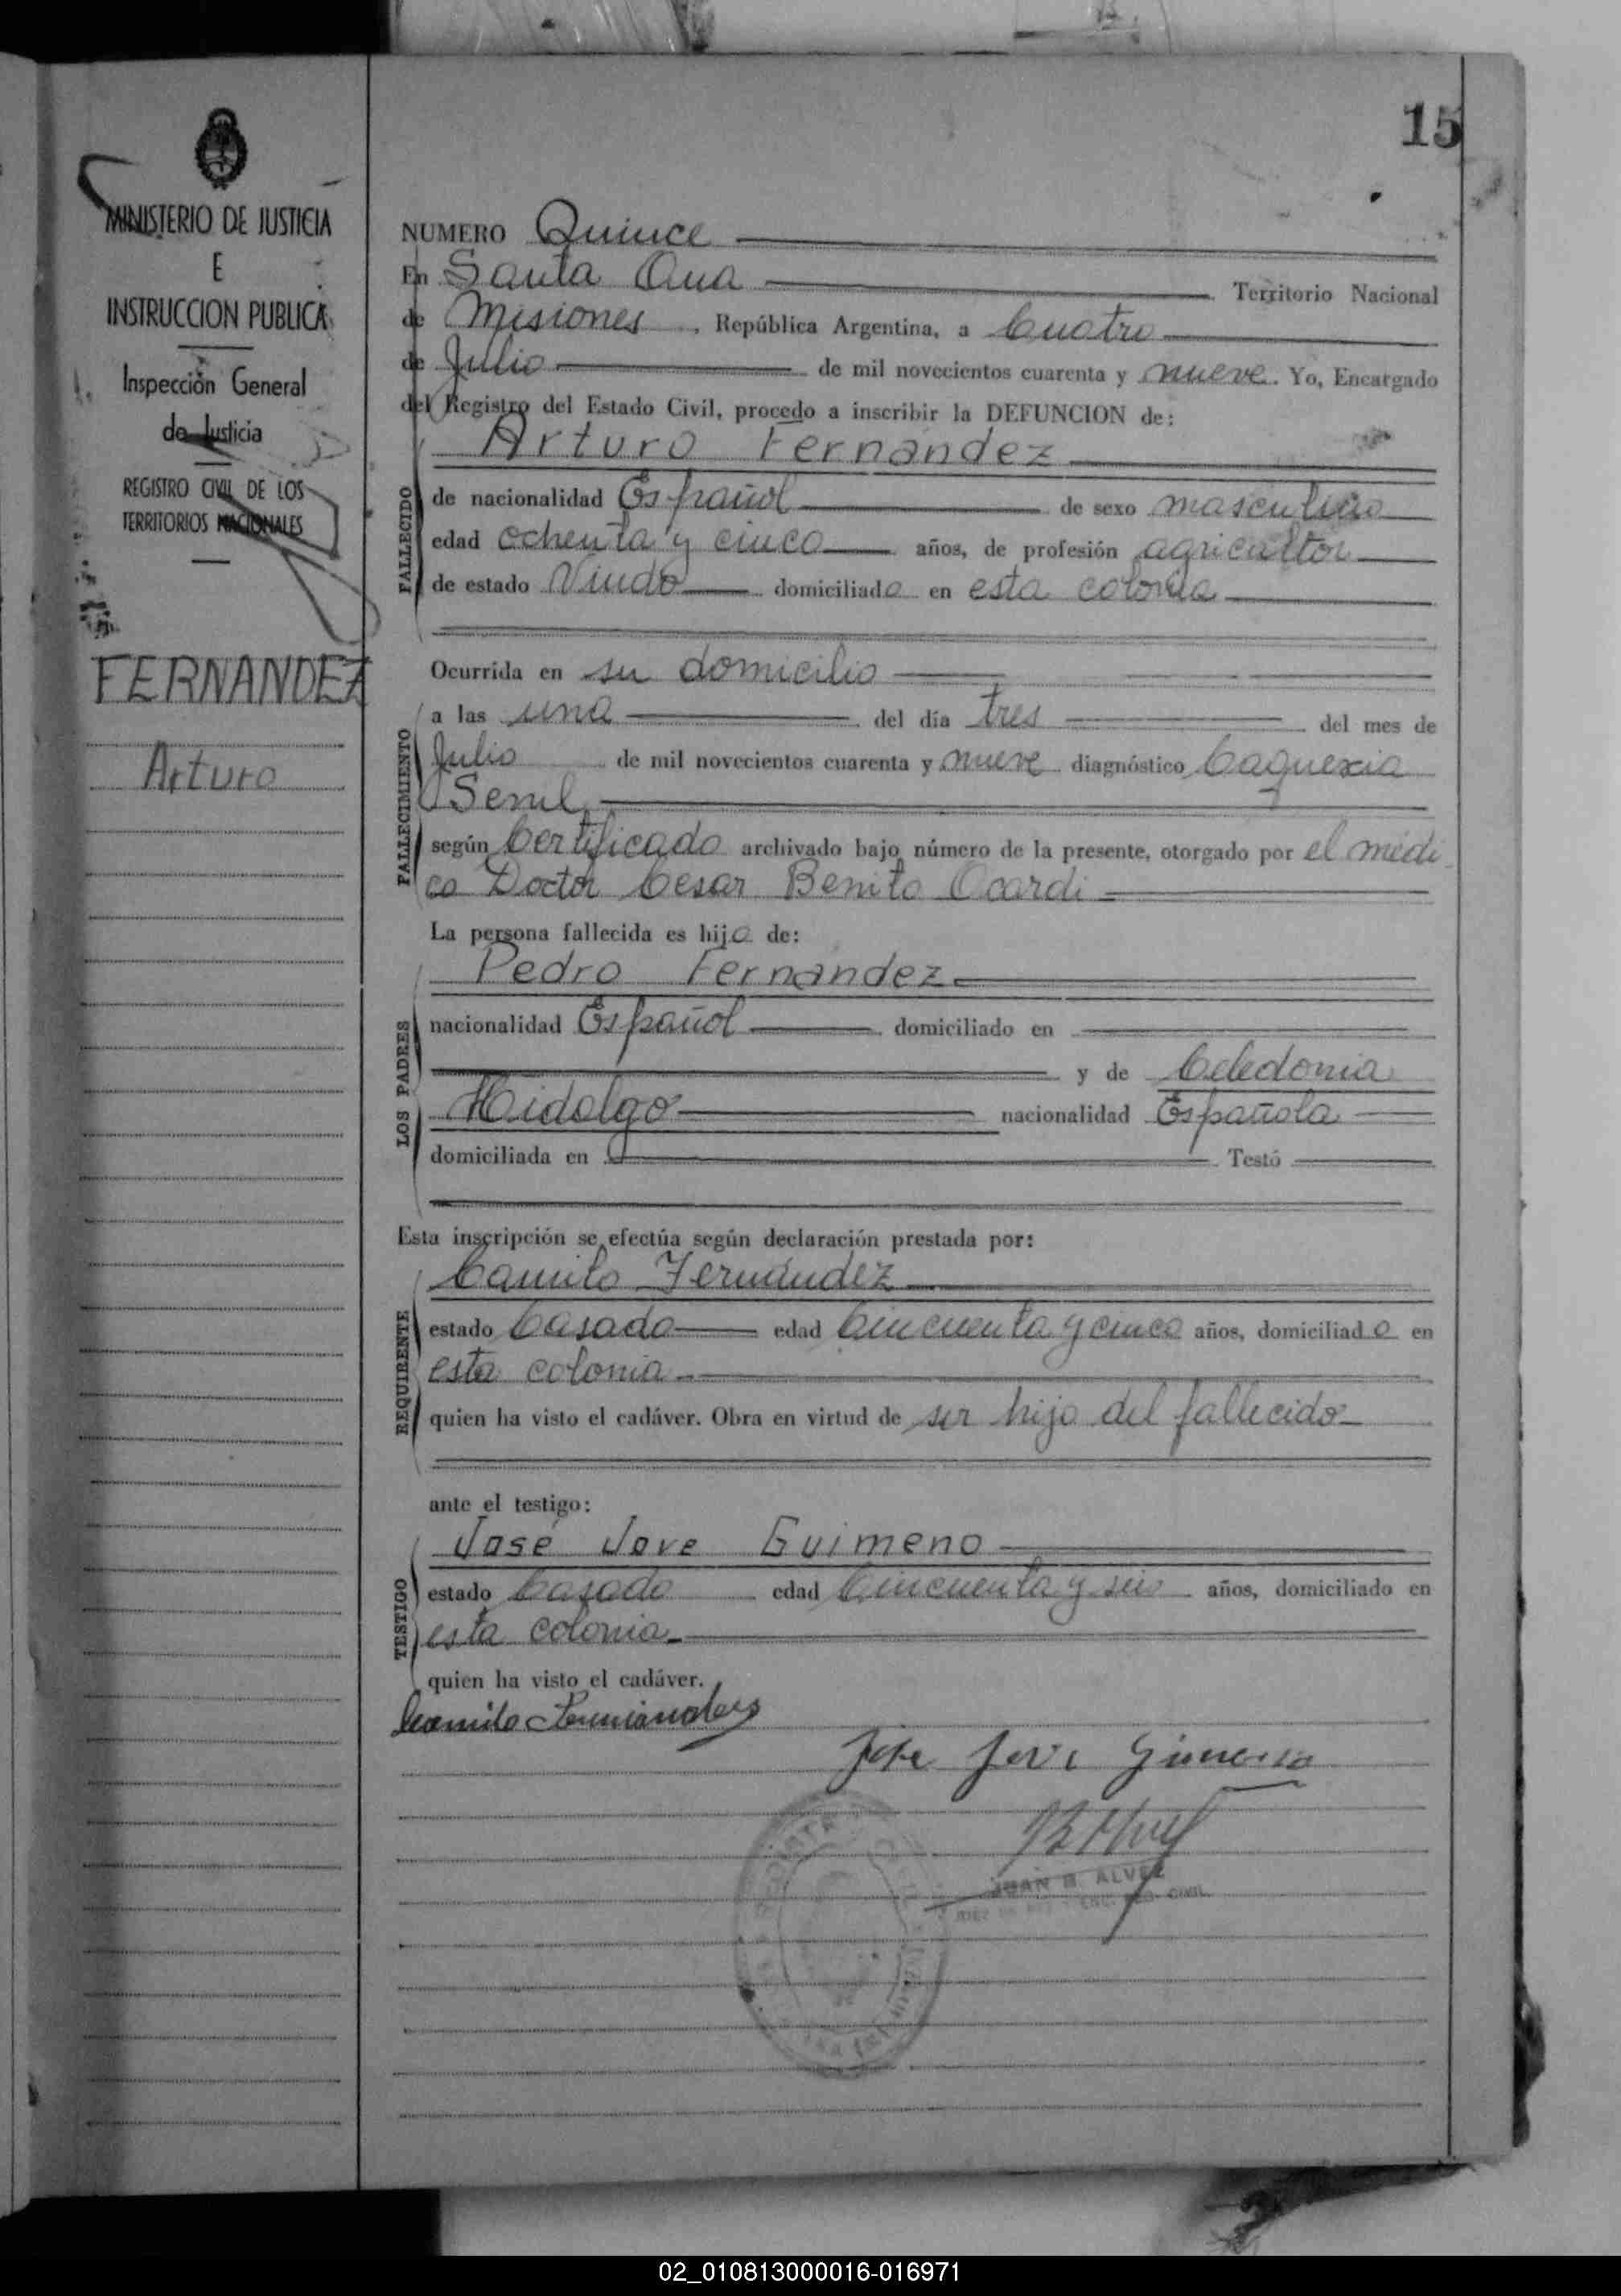 15
MINISTERIO DE JUSTICIA
E
INSTRUCCION PUBLICA
Inspección General
de Justicia
REGISTRO CIVIL DE LOS
TERRITORIOS NACIONALES
FERNANDEZ
Arturo
NUMERO Quince
En Santa Ana Territorio Nacional
de Misiones, República Argentina, a Cuatro
de Julio de mil novecientos cuarenta y nueve. Yo, Encargado
del Registro del Estado Civil, procedo a inscribir la DEFUNCION de:
Arturo Fernandez
FALLECIDO
de nacionalidad Español de sexo masculino
edad ochenta y cinco años, de profesión agricultor
de estado Viudo domiciliado en esta colonia
Ocurrida en su domicilio
FALLECIMIENTO
a las una del día tres del mes de
Julio de mil novecientos cuarenta y nueve diagnóstico Caquexia
Senil
según Certificado archivado bajo número de la presente, otorgado por el medi
co Doctor Cesar Benito Ocardi
La persona fallecida es hijo de:
LOS PADRES
Pedro Fernandez
nacionalidad Español domiciliado en
y de Celedonia
Hidalgo nacionalidad Española
domiciliada en Testó
Esta inscripción se efectúa según declaración prestada por:
REQUIRENTE
Camilo Fernández
estado Casado edad Cincuenta y cinco años, domiciliado en
esta colonia
quien ha visto el cadáver. Obra en virtud de ser hijo del fallecido
ante el testigo:
TESTIGO
José Jove Guimeno
estado Casado edad Cincuenta y seis años, domiciliado en
esta colonia
quien ha visto el cadáver.
Camilo Fernandes
Jose Jove Gimeno
JUAN B. ALVEZ
02_010813000016-016971